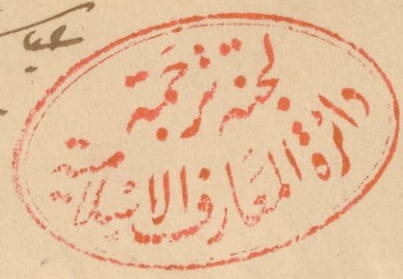 لجنة ترجمة
دائرة المعارف الإسلامية